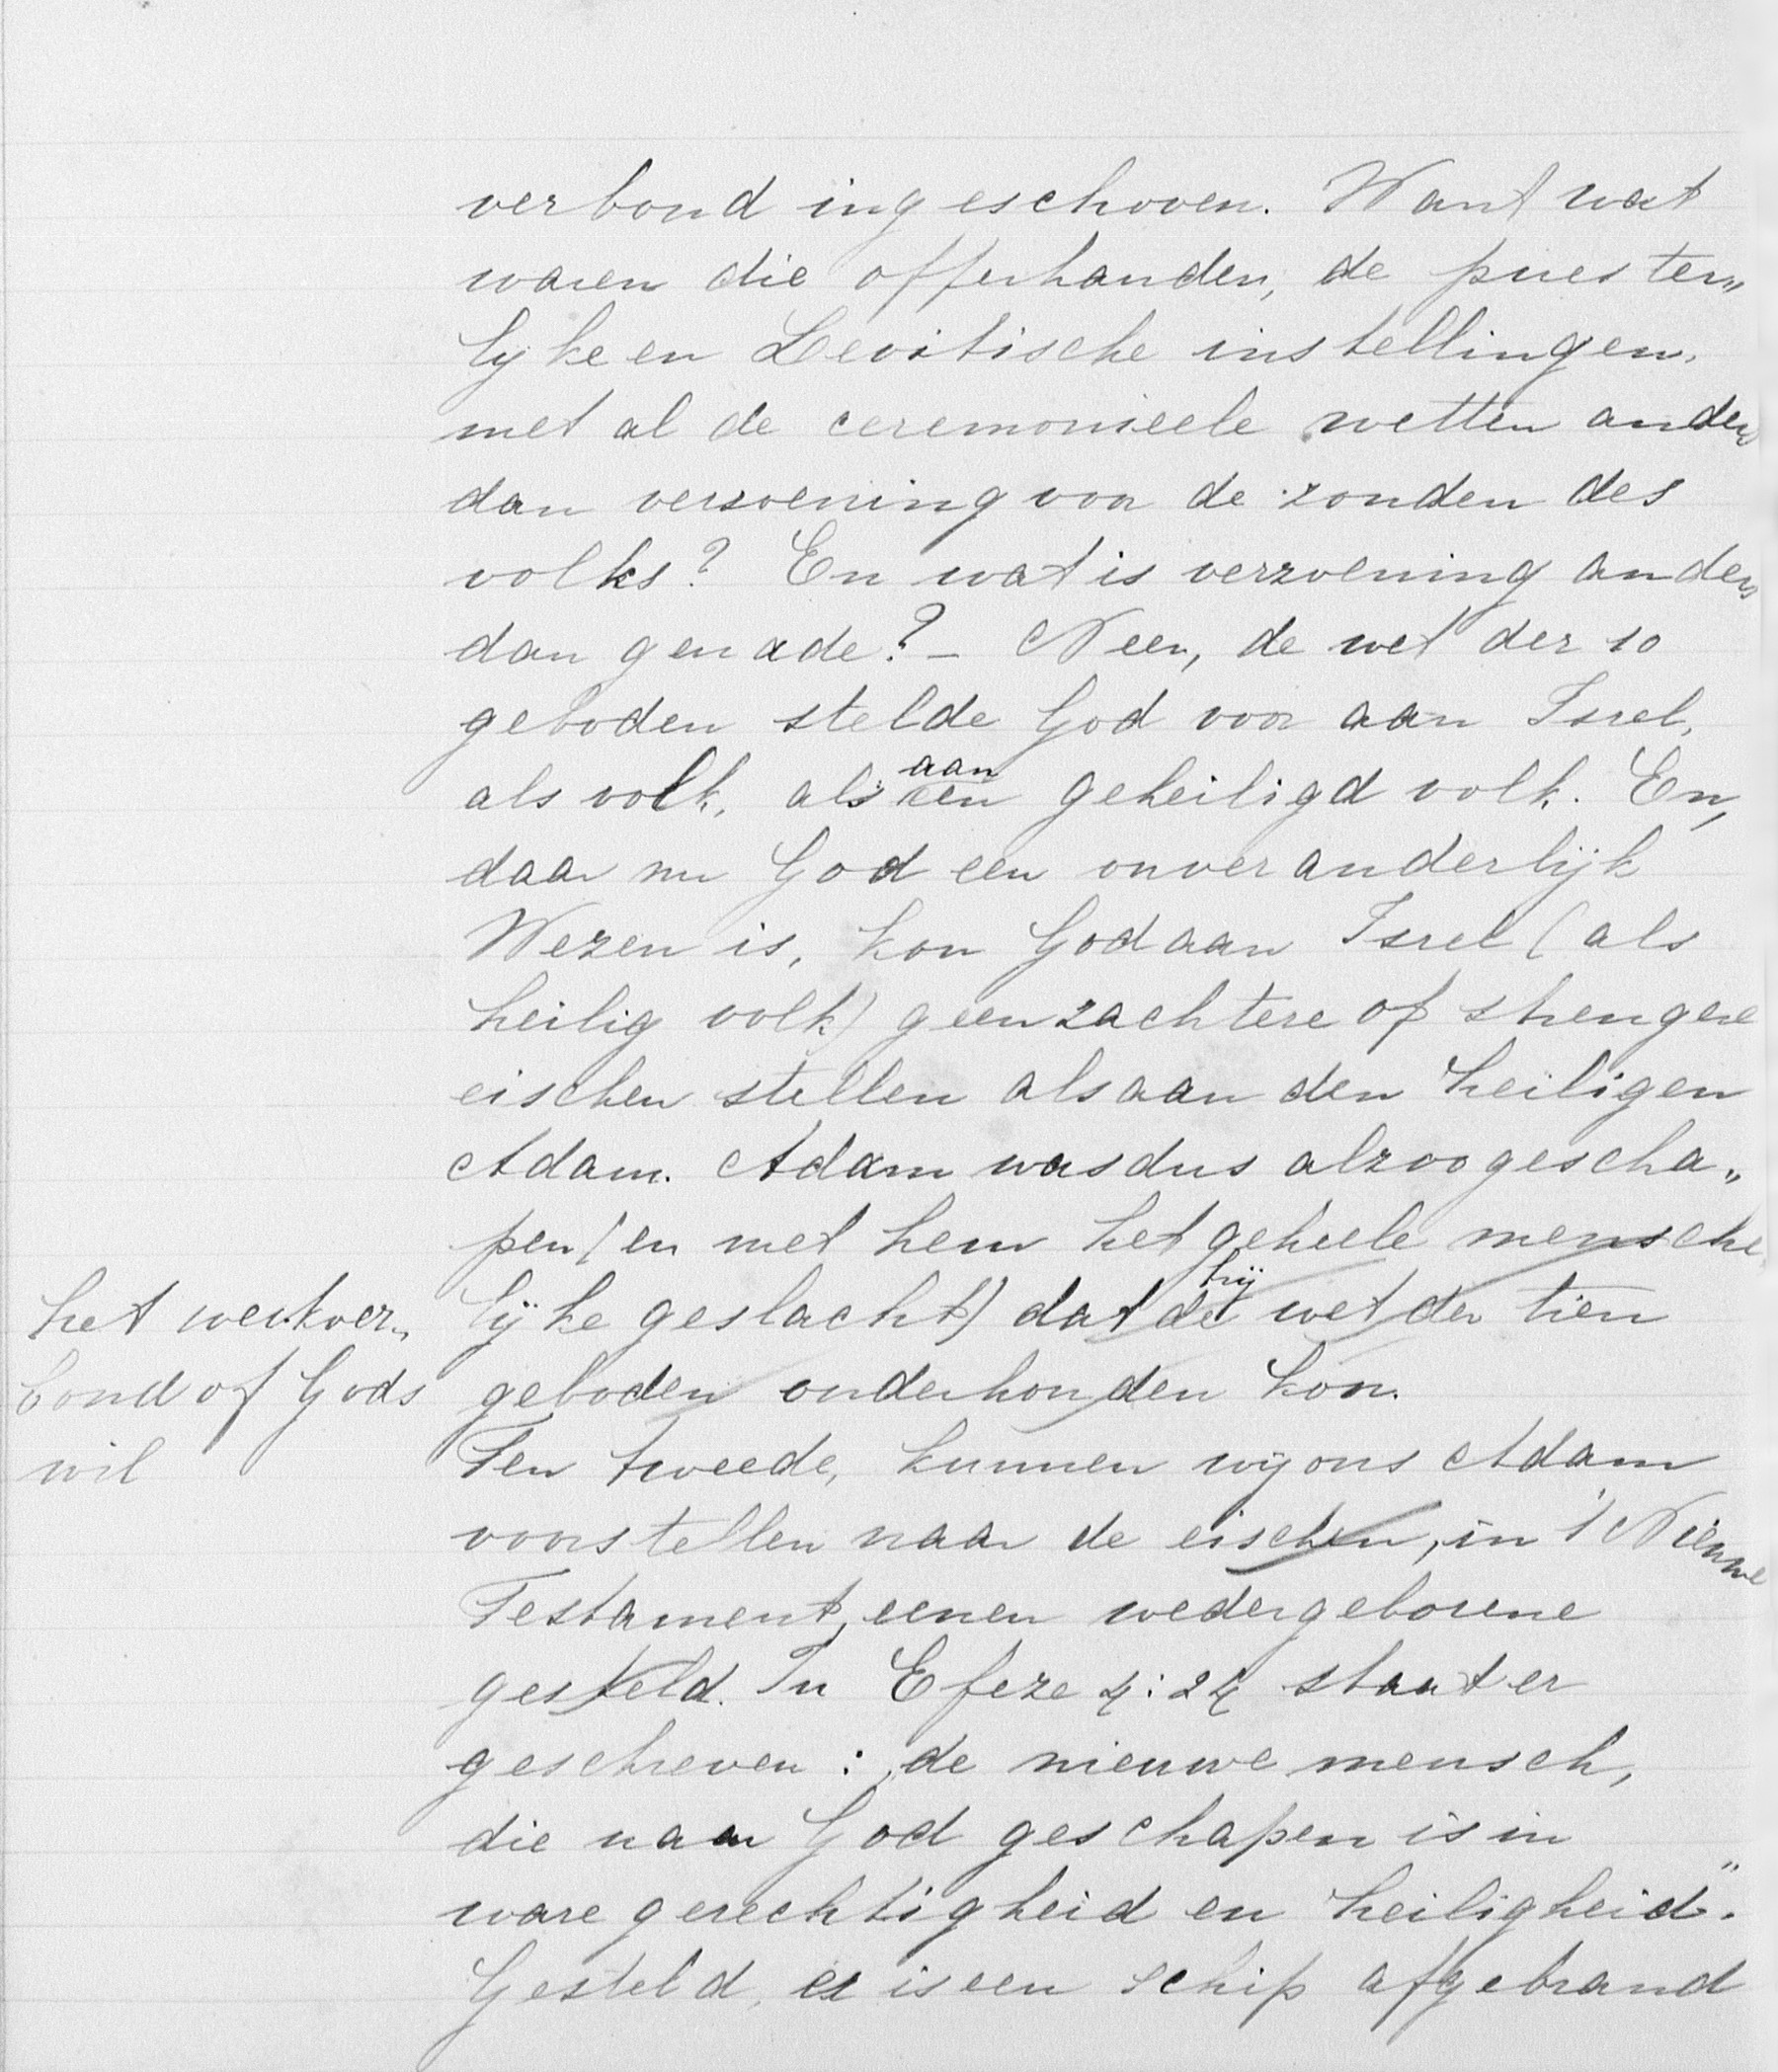 verbond ingeschoven. Want wat
waren die offerhanden, de priester„
lyke en Levitische instellingen,
met al de ceremonieele wetten anders
dan verzoening voor de zonden des
volks? En wat is verzoening anders
dan genade? – Neen, de wet der 10
geboden stelde God voor aan Isrel,
als volk, als aan
een geheiligd volk. En,
daar nu God een onveranderlijk
Wezen is, kon God aan Isrel (als
heilig volk) geen zachtere of strengere
eischen stellen als aan den heiligen
Adam. Adam was dus alzoo gescha„
pen (en met hem het geheele mensche
lijke geslacht) dat hij
de wet der tien
geboden onderhouden kon.
het werkver„
bond of Gods
wil
Ten tweede, kunnen wij ons Adam
voorstellen naar de eischen, in 't Nieuwe
Testament, eenen wedergeborene
gesteld. In Efeze 4:24 staat er
geschreven: „de nieuwe mensch,
die naar God geschapen is in
ware gerechtigheid en heiligheid".
Gesteld, er is een schip afgebrand